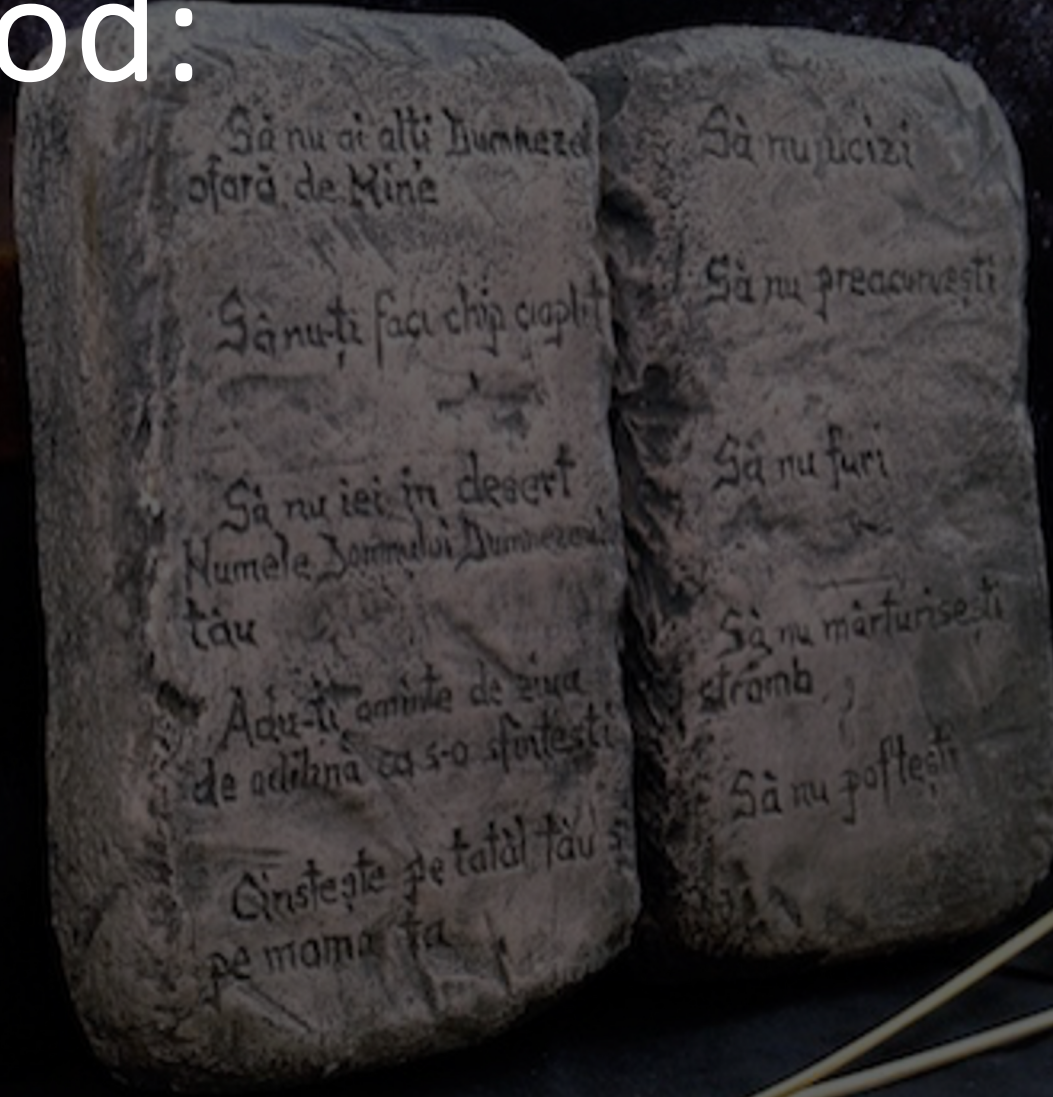 od:
Să nu ai alți Dumnezei
afară de Mine
Să nu-ți faci chip cioplit
Să nu iei in desert
Numele Domnului Dumnezeului
tău
Adu-ți aminte de ziua
de odihnă ca s-o sfintești
Cinstește pe tatăl tău ș
pe mama ta
Să nu ucizi
Să nu preacurvești
Să nu furi
Să nu mărturisești
strâmb
Să nu poftești